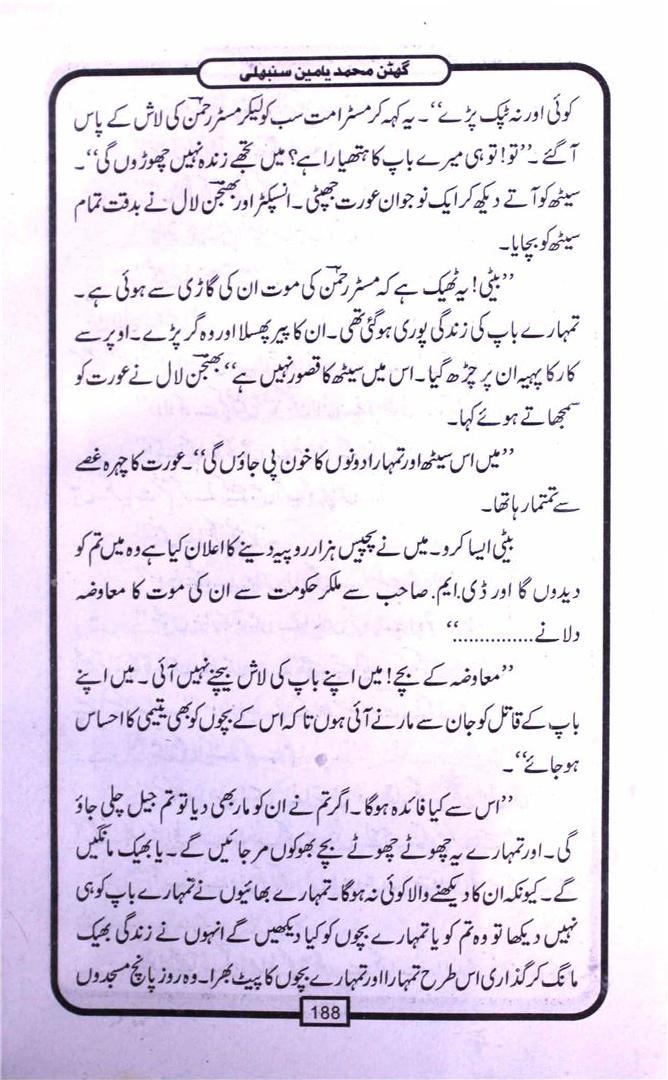 گھٹن محمد یامین سنبھلی
کوئی اور نہ ٹپک پڑے‘‘۔ یہ کہہ کر مسٹر امت سب کو لیکر مسٹر رحمٰن کی لاش کے پاس
آگئے ۔’’تو! تو ہی میرے باپ کا ہتھیارا ہے؟ میں تجھے زندہ نہیں چھوڑوں گی‘‘۔
سیٹھ کو آتے دیکھ کر ایک نوجوان عورت جھپٹی۔ انسپکٹر اور بھنجن لال نے بدقت تمام
سیٹھ کو بچایا۔
’’بیٹی! یہ ٹھیک ہے کہ مسٹر رحمٰن کی موت ان کی گاڑی سے ہوئی ہے۔
تمہارے باپ کی زندگی پوری ہوگئی تھی۔ ان کا پیر پھسلا اور وہ گر پڑے۔ اوپر سے
کار کا پہیہ ان پر چڑھ گیا۔ اس میں سیٹھ کا قصور نہیں ہے‘‘ بھنجن لال نے عورت کو
سمجھاتے ہوئے کہا۔
’’میں اس سیٹھ اور تمہارا دونوں کا خون پی جاؤں گی‘‘۔ عورت کا چہرہ غصے
سے تمتما رہا تھا۔
بیٹی ایسا کرو۔ میں نے پچیس ہزار روپیہ دینے کا اعلان کیا ہے وہ میں تم کو
دیدوں گا اور ڈی.ایم. صاحب سے ملکر حکومت سے ان کی موت کا معاوضہ
دلانے ...............‘‘
’’معاوضہ کے بچے! میں اپنے باپ کی لاش بیچنے نہیں آئی۔ میں اپنے
باپ کے قاتل کو جان سے مارنے آئی ہوں تاکہ اس کے بچوں کو بھی یتیمی کا احساس
ہو جائے‘‘۔
’’اس سے کیا فائدہ ہوگا۔ اگر تم نے ان کو مار بھی دیا تو تم جیل چلی جاؤ
گی۔ اور تمہارے یہ چھوٹے چھوٹے بچے بھوکوں مر جائیں گے۔ یا بھیک مانگیں
گے۔ کیونکہ ان کا دیکھنے والا کوئی نہ ہوگا۔ تمہارے بھائیوں نے تمہارے باپ کو ہی
نہیں دیکھا تو وہ تم کو یا تمہارے بچوں کو کیا دیکھیں گے انہوں نے زندگی بھیک
مانگ کر گذاری اس طرح تمہارا اور تمہارے بچوں کا پیٹ بھرا۔ وہ روز پانچ مسجدوں
188